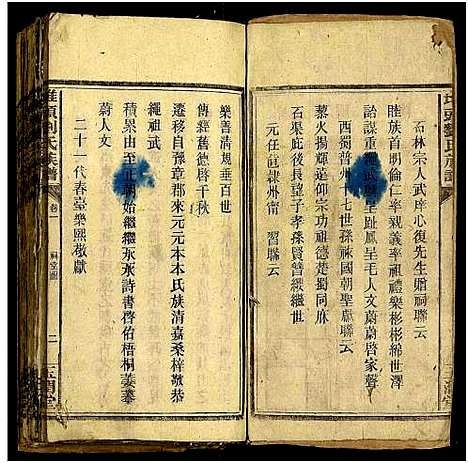 石林宗人武庠心復先生贈祠聯云
睦族首明倫仁率親義率祖禮樂彬彬綿世澤
詒謀重 武 呈趾鳳呈毛人文蔚蔚啓家聲
西蜀普州十七世孫 國朝聖獻聯云
藜火揚輝遠仰宗功祖德楚蜀同麻
石渠庇後長望子孝孫賢簪綬繼世
元任直隸州甯 習聯云
樂善清規垂百世
傳經舊德啓千秋
遷移自豫章郡來元元本本氏族清嘉桑梓敬恭
繩祖武
積累由至正朝始繼繼承承詩書啓佑梧桐萋萋
蔚人文
二十一代春臺樂熙敬獻
劉氏族譜
卷
祠堂聯
二